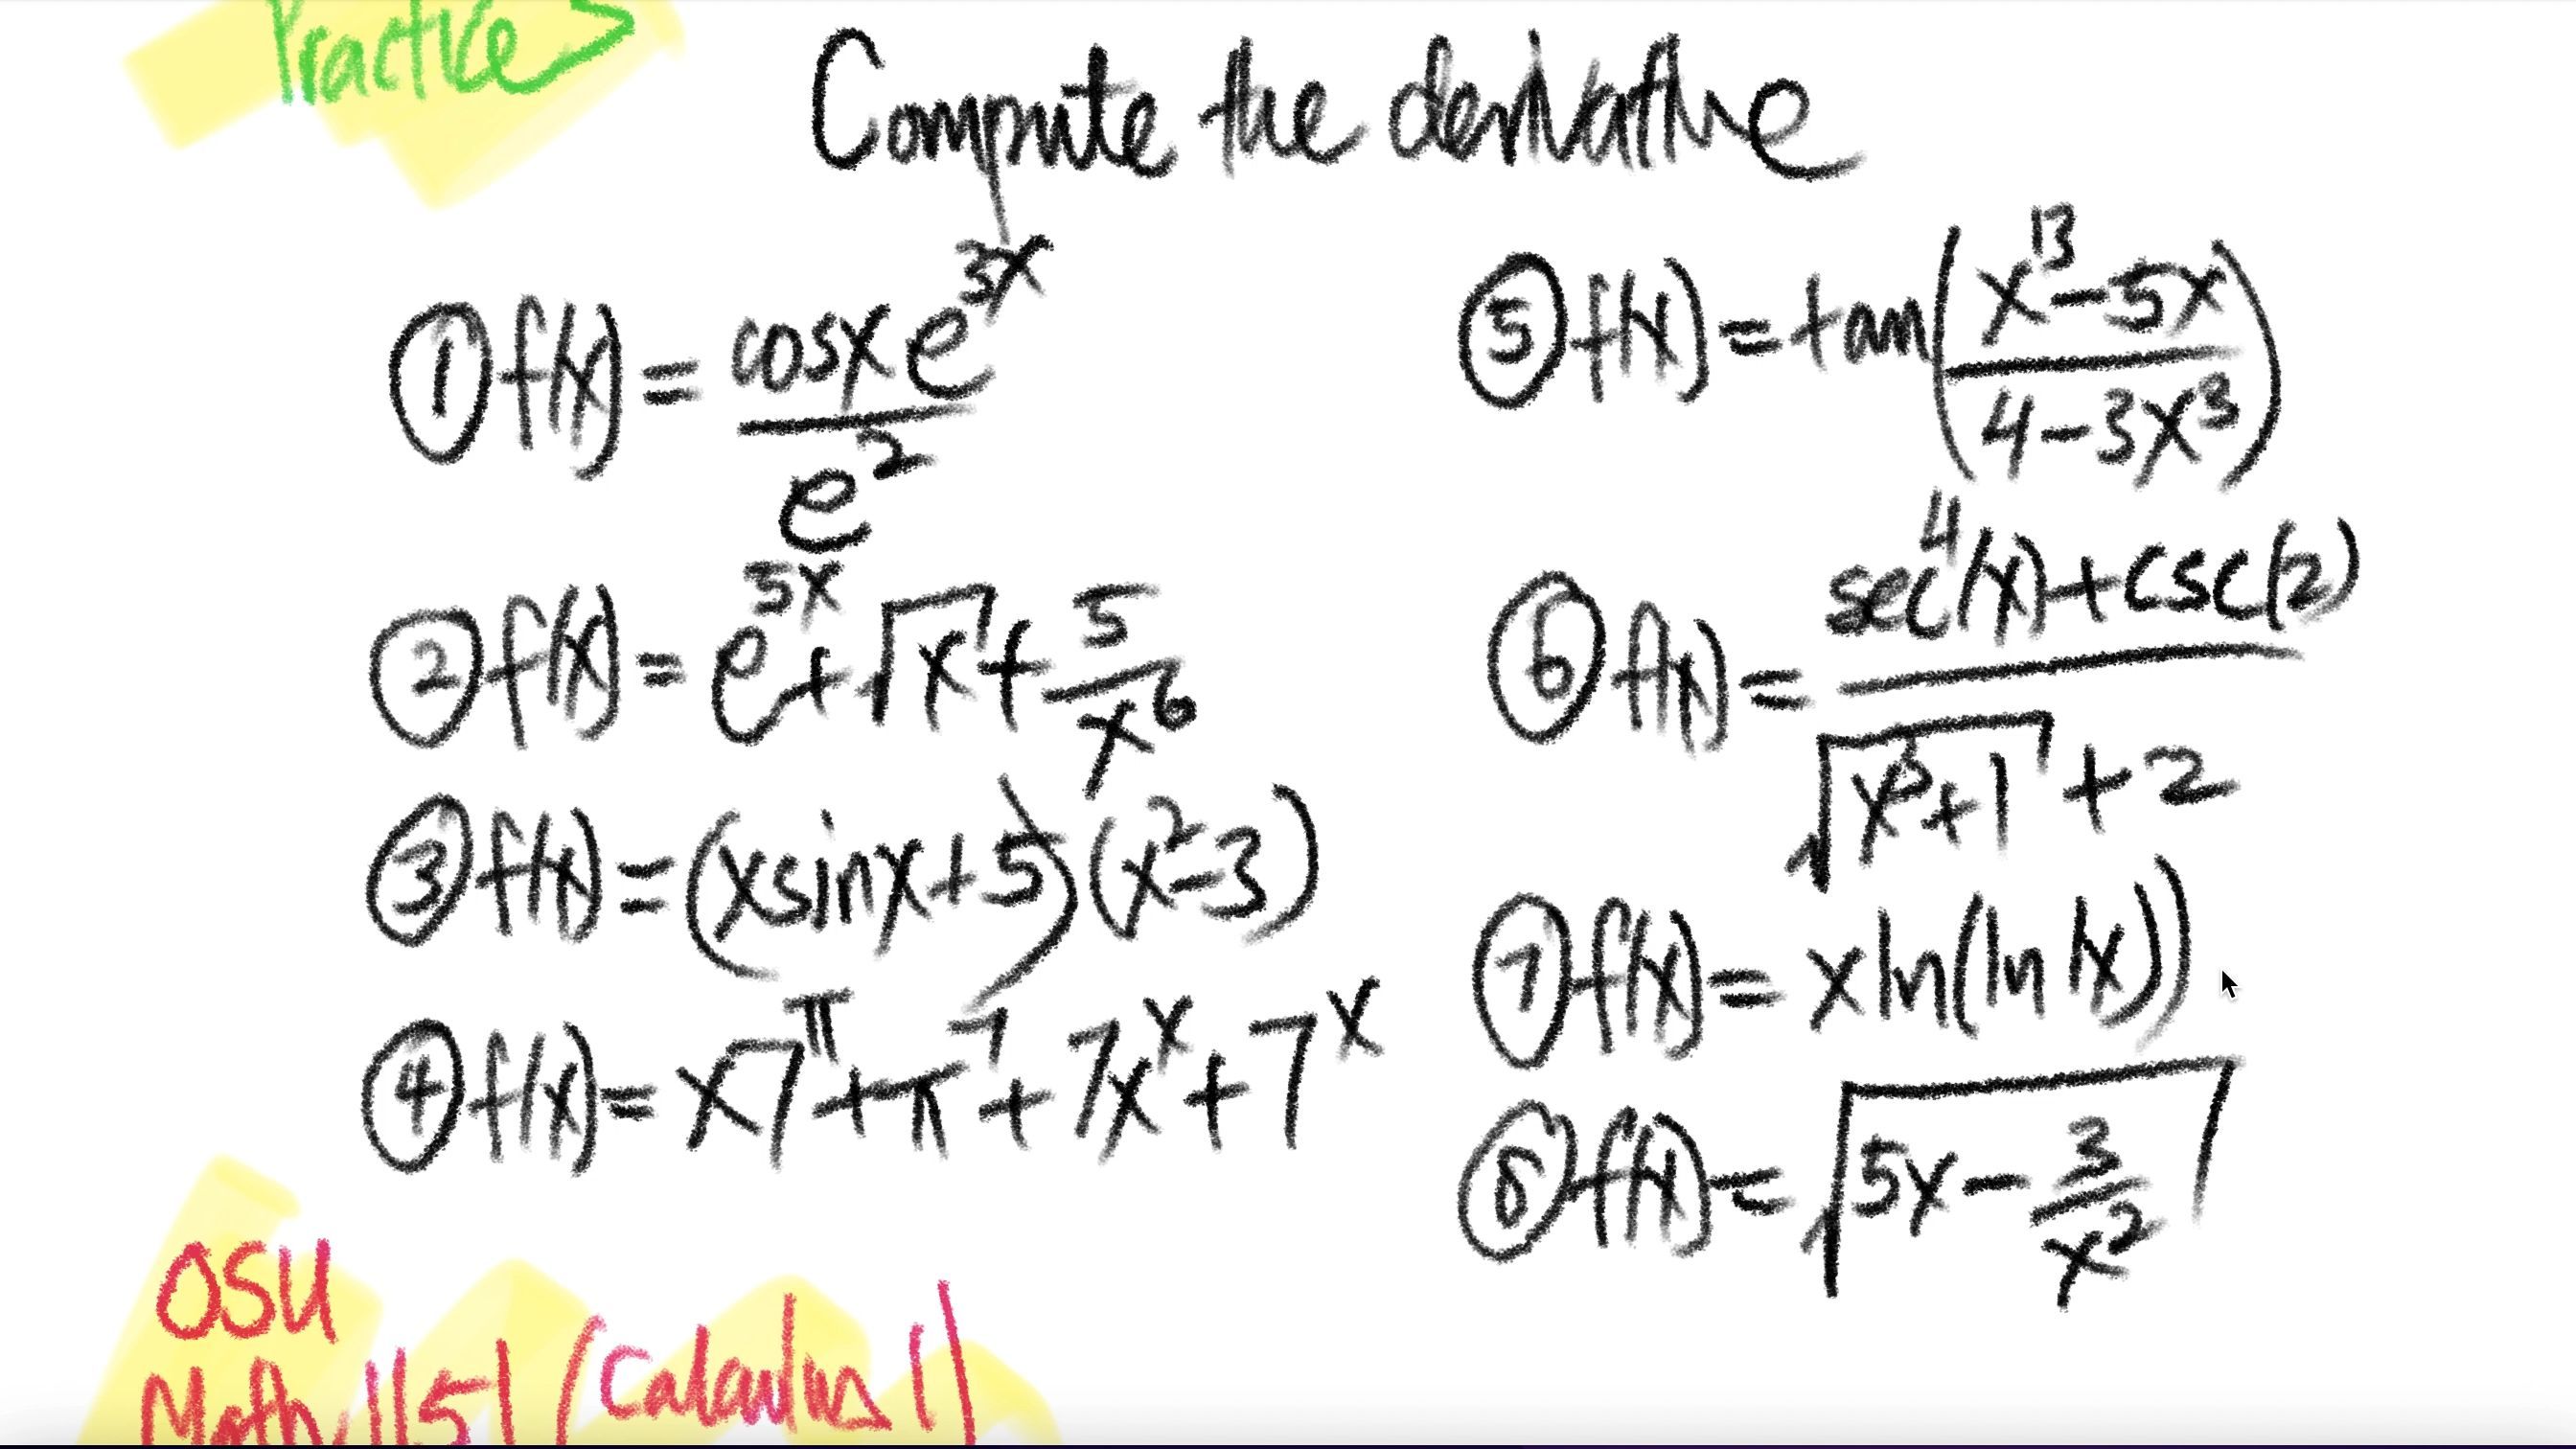 Practice
Compute the derivative
① f(x) = cosx e^{3x} / e^2
② f(x) = e^{5x} + √x + 5/x^6
③ f(x) = (xsinx+5)(x^2-3)
④ f(x) = x7^π + π^7 + 7x^x + 7^x
⑤ f(x) = tan((x^{13}-5x)/(4-3x^3))
⑥ f(x) = (sec^4(x)+csc(2))/(√(x^3+1) + 2)
⑦ f(x) = x ln(ln(x))
⑧ f(x) = √(5x - 3/x^2)
OSU
Math 1151 (Calculus 1)